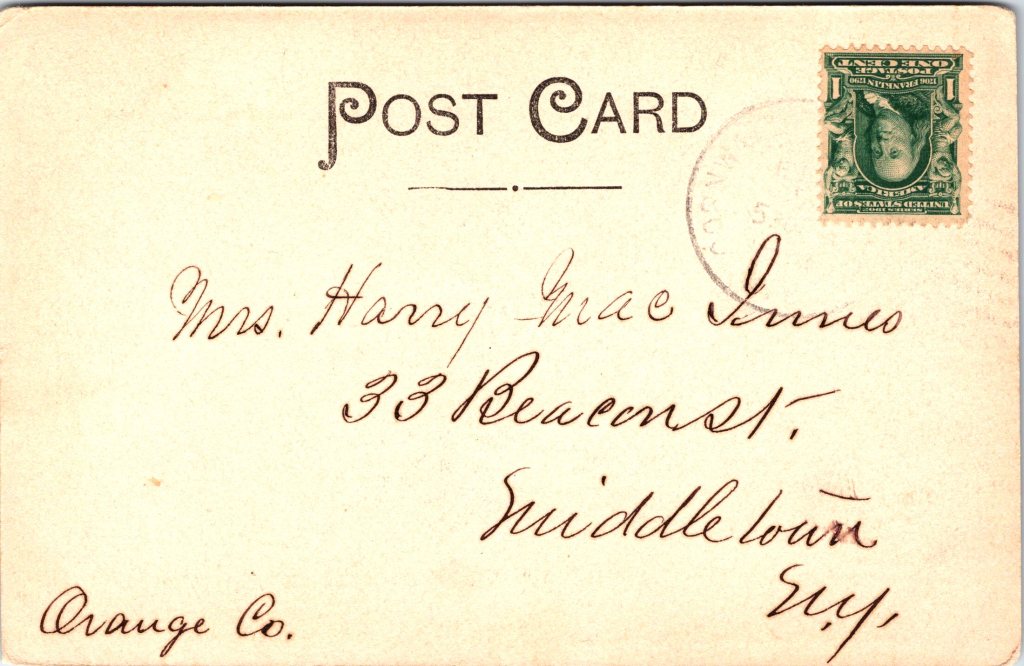 POST CARD
ONE CENT
POSTAGE
1706 FRANKLIN 1790
1 1
AMERICA
UNITED STATES OF
SERIES 1902
5
Mrs. Harry Mac Innes
33 Beacon St.
Middletown
N.Y.
Orange Co.